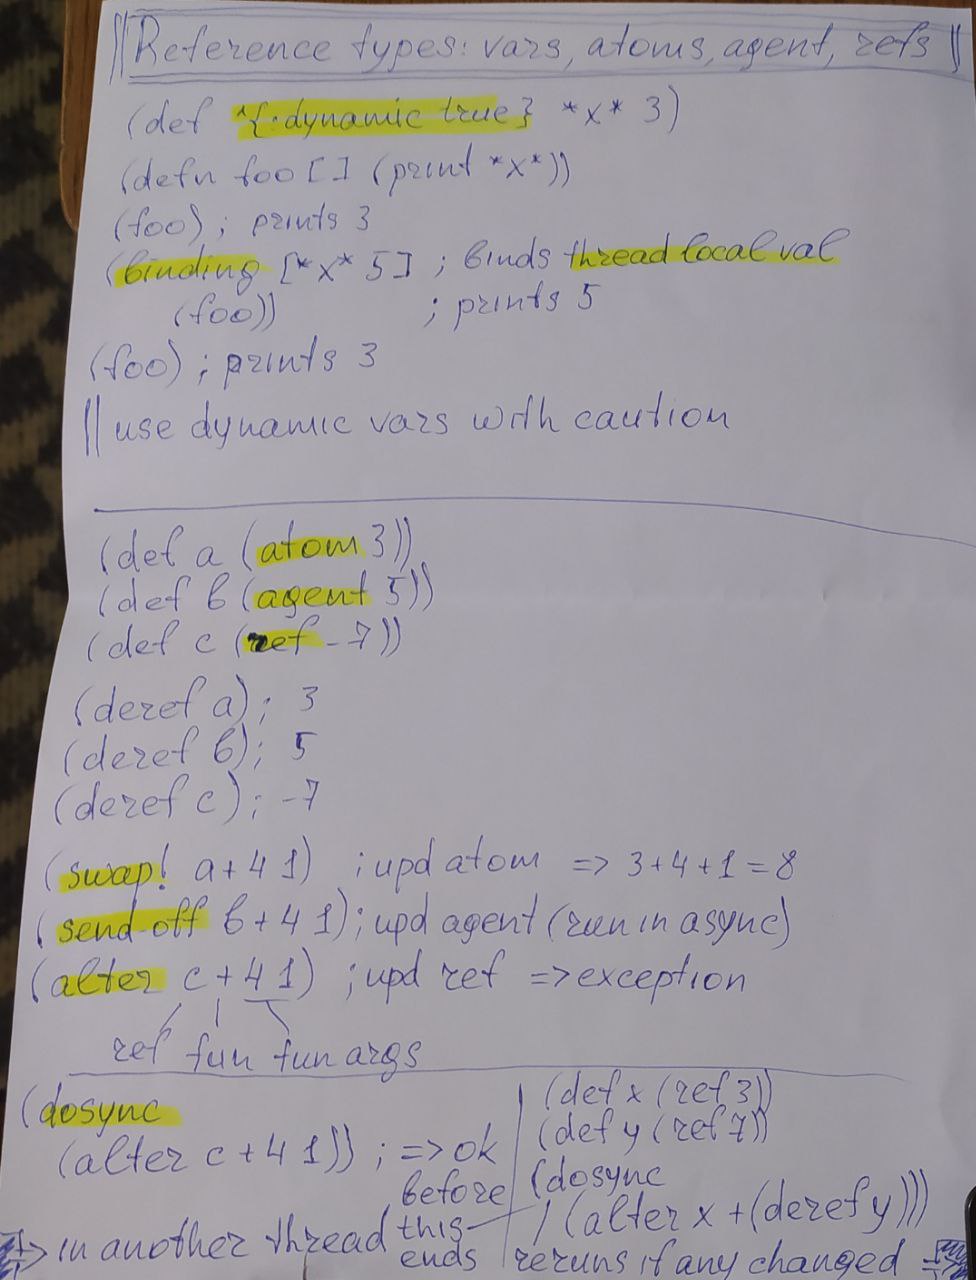 ||Reference types: vars, atoms, agent, refs||
(def ^{:dynamic true} *x* 3)
(defn foo [] (print *x*))
(foo) ; prints 3
(binding [*x* 5] ; binds thread local val
(foo)) ; prints 5
(foo) ; prints 3
|| use dynamic vars with caution
(def a (atom 3))
(def b (agent 5))
(def c (ref -7))
(deref a); 3
(deref b); 5
(deref c); -7
(swap! a + 4 1) ; upd atom => 3+4+1=8
(send-off b + 4 1); upd agent (run in async)
(alter c + 4 1) ; upd ref => exception
ref fun fun args
(dosync
(alter c + 4 1)) ; => ok
(def x (ref 3))
(def y (ref 7))
(dosync
(alter x + (deref y)))
reruns if any changed =>
=> in another thread before this ends